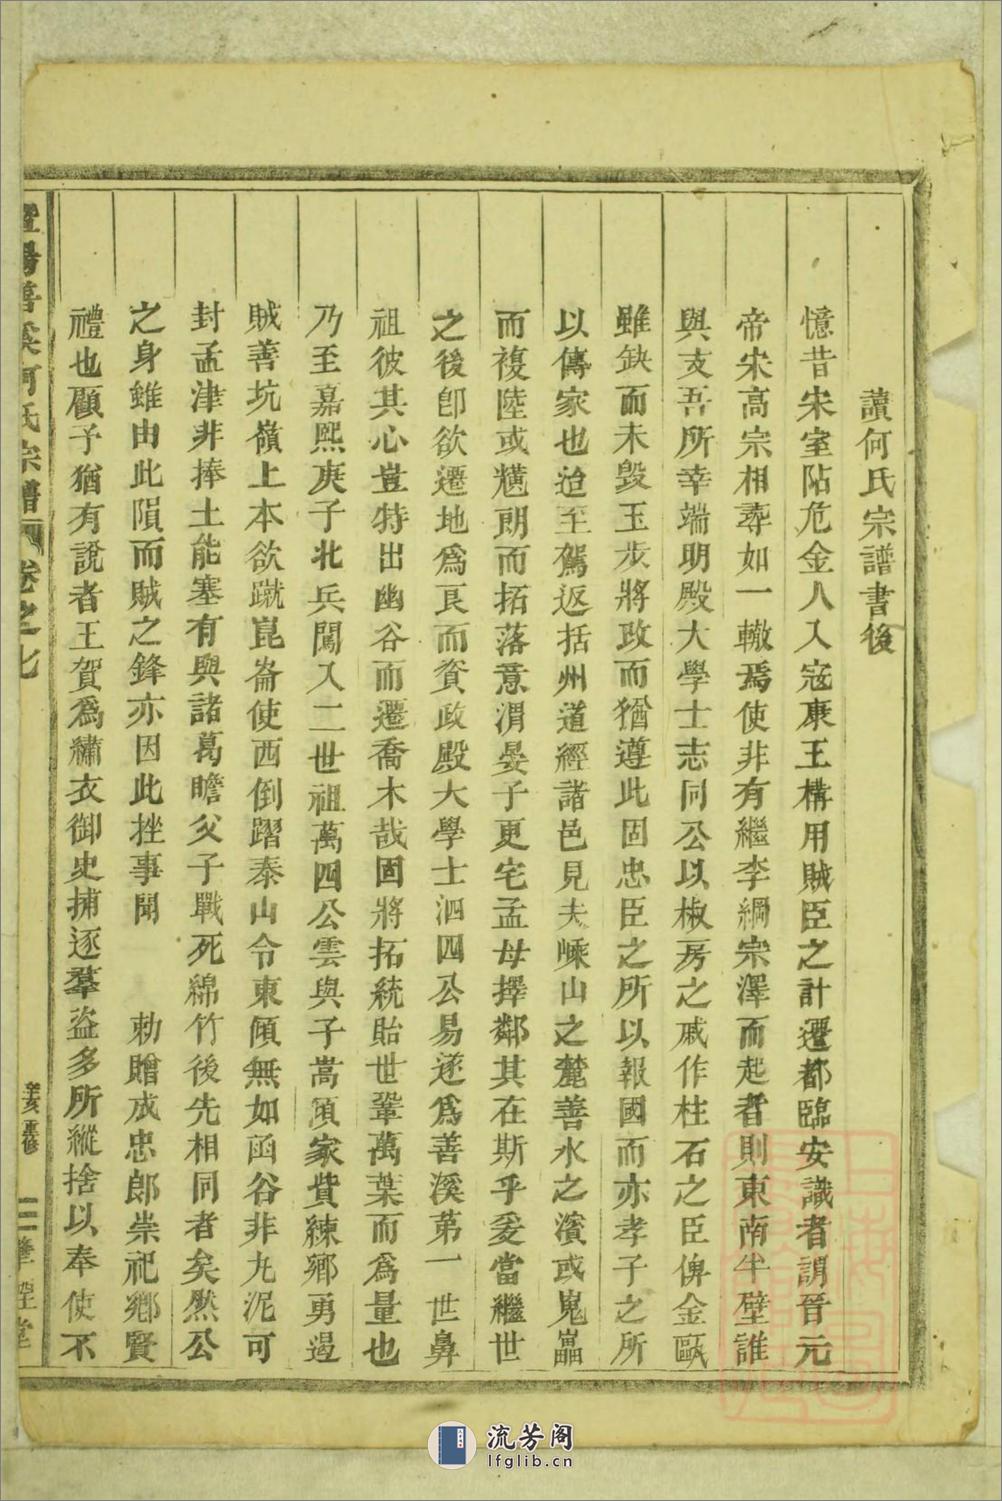 讀何氏宗譜書後
憶昔宋室阽危金人入寇康王構用賊臣之計遷都臨安識者謂晉元
帝宋高宗相尋如一轍焉使非有繼李綱宗澤而起者則東南半壁誰
與支吾所幸端明殿大學士志同公以椒房之戚作柱石之臣俾金甌
雖缺而未毀玉步將政而猶遵此固忠臣之所以報國而亦孝子之所
以傳家也迨至駕返括州道經諸邑見夫嵊山之麓善水之濱或嵬畾
而複陸或爌朗而拓落意謂晏子更宅孟母擇鄰其在斯乎爰當繼世
之後卽欲遷地爲良而資政殿大學士泗四公易遂爲善溪第一世鼻
祖彼其心豈特出幽谷而遷喬木哉固將拓統貽世鞏萬葉而爲量也
乃至嘉熙庚子北兵闖入二世祖萬四公雲與子嵩傾家貲練鄉勇遏
賊善坑嶺上本欲蹴崑崙使西倒蹈泰山令東傾無如函谷非丸泥可
封孟津非捧土能塞有與諸葛瞻父子戰死綿竹後先相同者矣然公
之身雖由此隕而賊之鋒亦因此挫事聞 勅贈成忠郎崇祀鄉賢
禮也顧予猶有說者王賀爲繡衣御史捕逐羣盜多所縱捨以奉使不
暨陽善溪何氏宗譜 卷之七 辛亥重修 二 隆堂
流芳阁
lfglib.cn